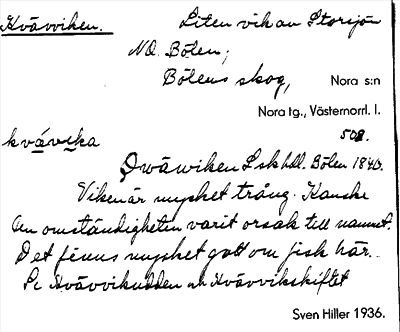 Kvävviken. Liten vik av Storsjön
NO. Bölen;
Bölens skog, Nora s:n
Nora tg., Västernorrl. l.
kvävika 508.
Qwäwiken L skhdl. Bölen 1840.
Viken är mycket trång. Kanske
den omständigheten varit orsak till namnet.
Det finns mycket gott om fisk här.
Se Kvävvikudden och Kvävvikskiftet
Sven Hiller 1936.